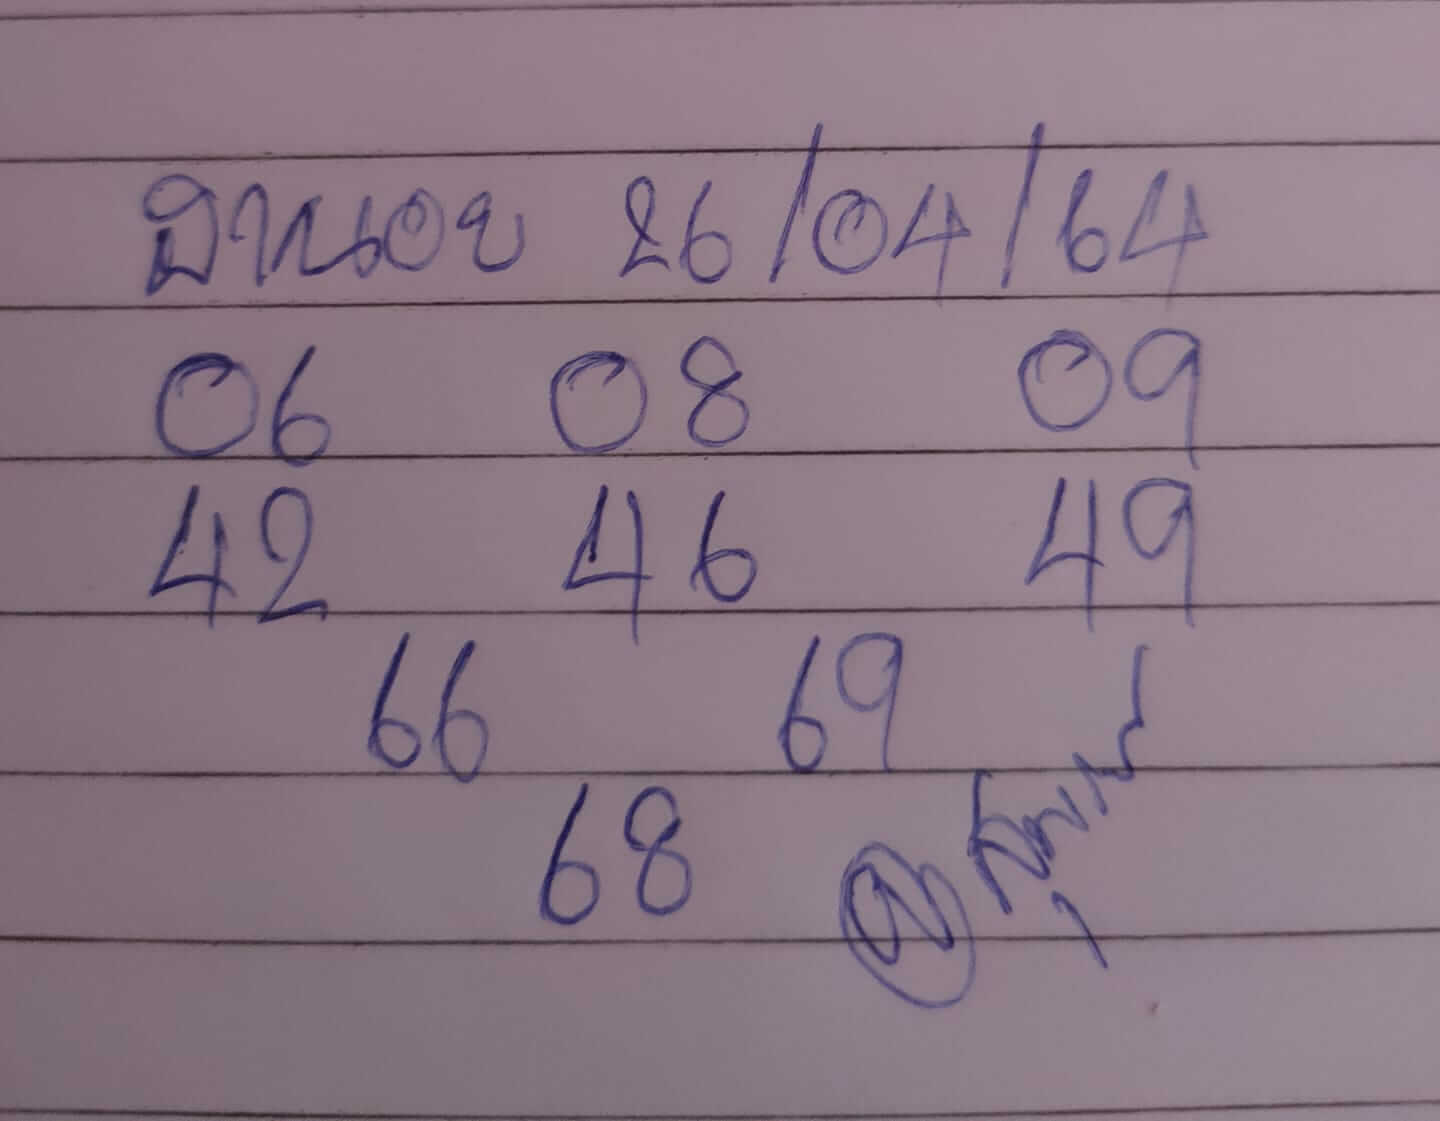 ฮานอย 26/04/64
06 08 09
42 46 49
66 69
68